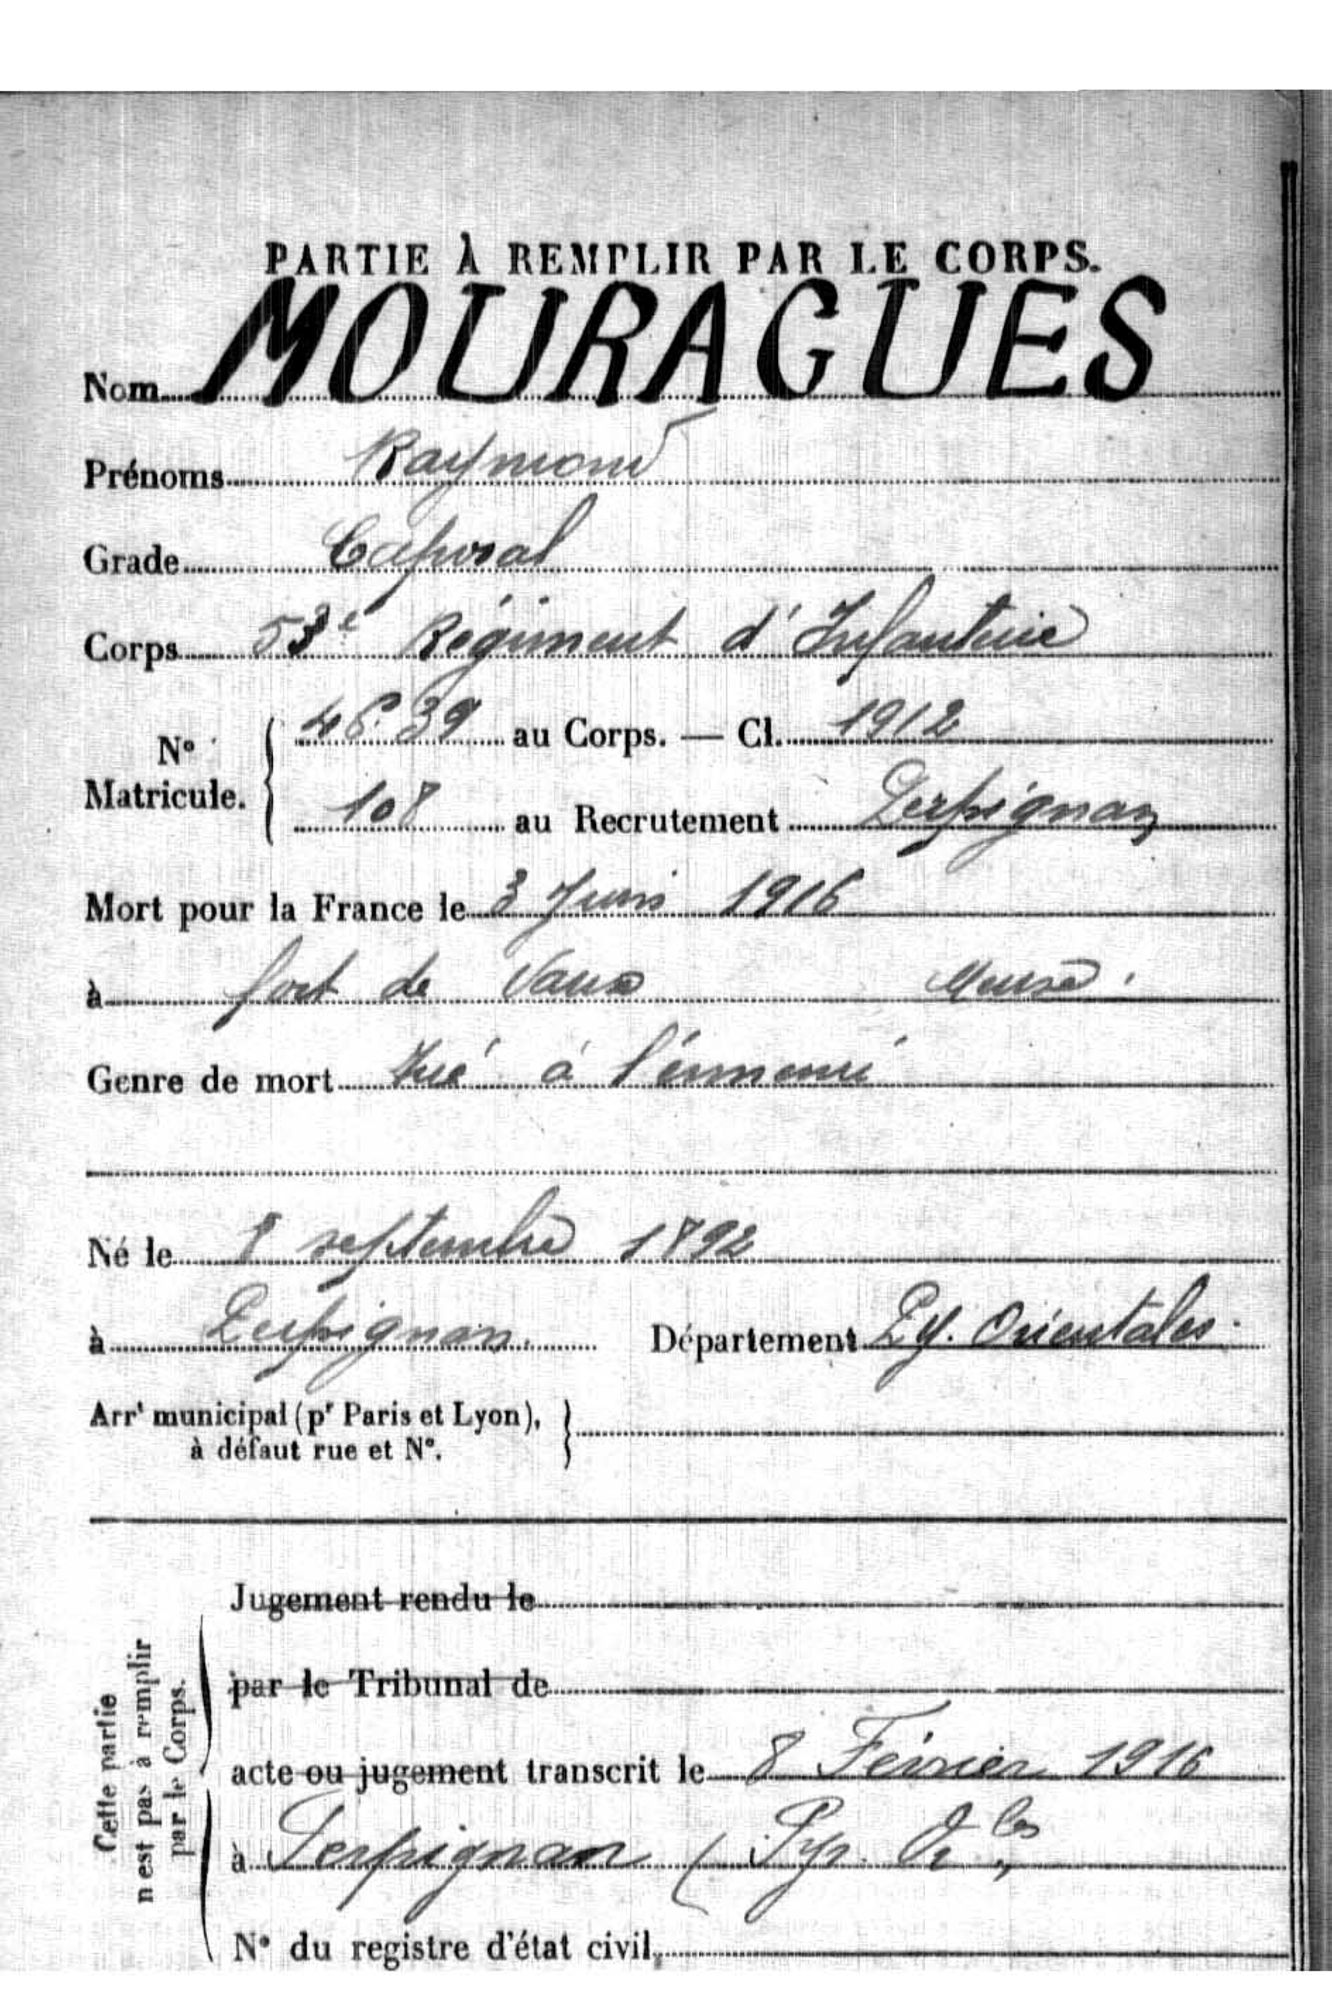 PARTIE À REMPLIR PAR LE CORPS.
Nom MOURAGUES
Prénoms Raymond
Grade Caporal
Corps 53e Régiment d'Infanterie
N° Matricule. 4639 au Corps. — Cl. 1912
108 au Recrutement Perpignan
Mort pour la France le 3 Juin 1916
à fort de Vaux Meuse.
Genre de mort tué à l'ennemi
Né le 8 septembre 1892
à Perpignan. Département Py. Orientales.
Arrt municipal (pr Paris et Lyon),
à défaut rue et N°.
Cette partie
n'est pas à remplir
par le Corps.
Jugement rendu le
par le Tribunal de
acte ou jugement transcrit le 8 Février 1916
à Perpignan (Pyr. Or les
N° du registre d'état civil